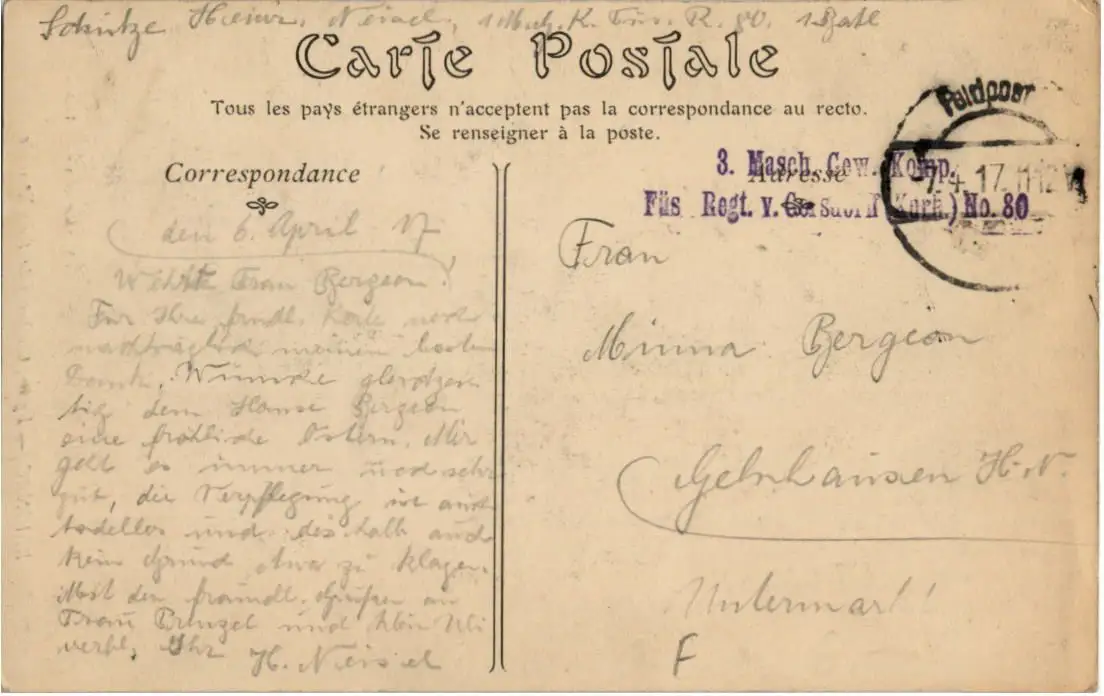 Schütze Heinr. Neisel, 1 Msch. K. Füs. R. 80. 1 Batl
Carte Postale
Tous les pays étrangers n'acceptent pas la correspondance au recto.
Se renseigner à la poste.
Correspondance
Adresse
Feldpost
7.4.17. 11-12 V
3. Masch. Gew. Komp.
Füs Regt. v. Gersdorff Kurh.) No. 80
den 6. April 17
Frau Bergeon!
Für Ihre frndl. Karte noch
nachträglich meinen besten
Dank. Wünsche gleichzei
tig dem Hause Bergeon
eine fröhliche Ostern. Mir
geht es immer noch sehr
gut, die Verpflegung ist auch
tadellos und deshalb auch
kein Grund etwas zu klagen.
Mit den freundl. Grüßen an
Frau und klein
Ihr H. Neisel
Frau
Minna Bergeon
Gelnhausen H.-N.
Untermarkt
F